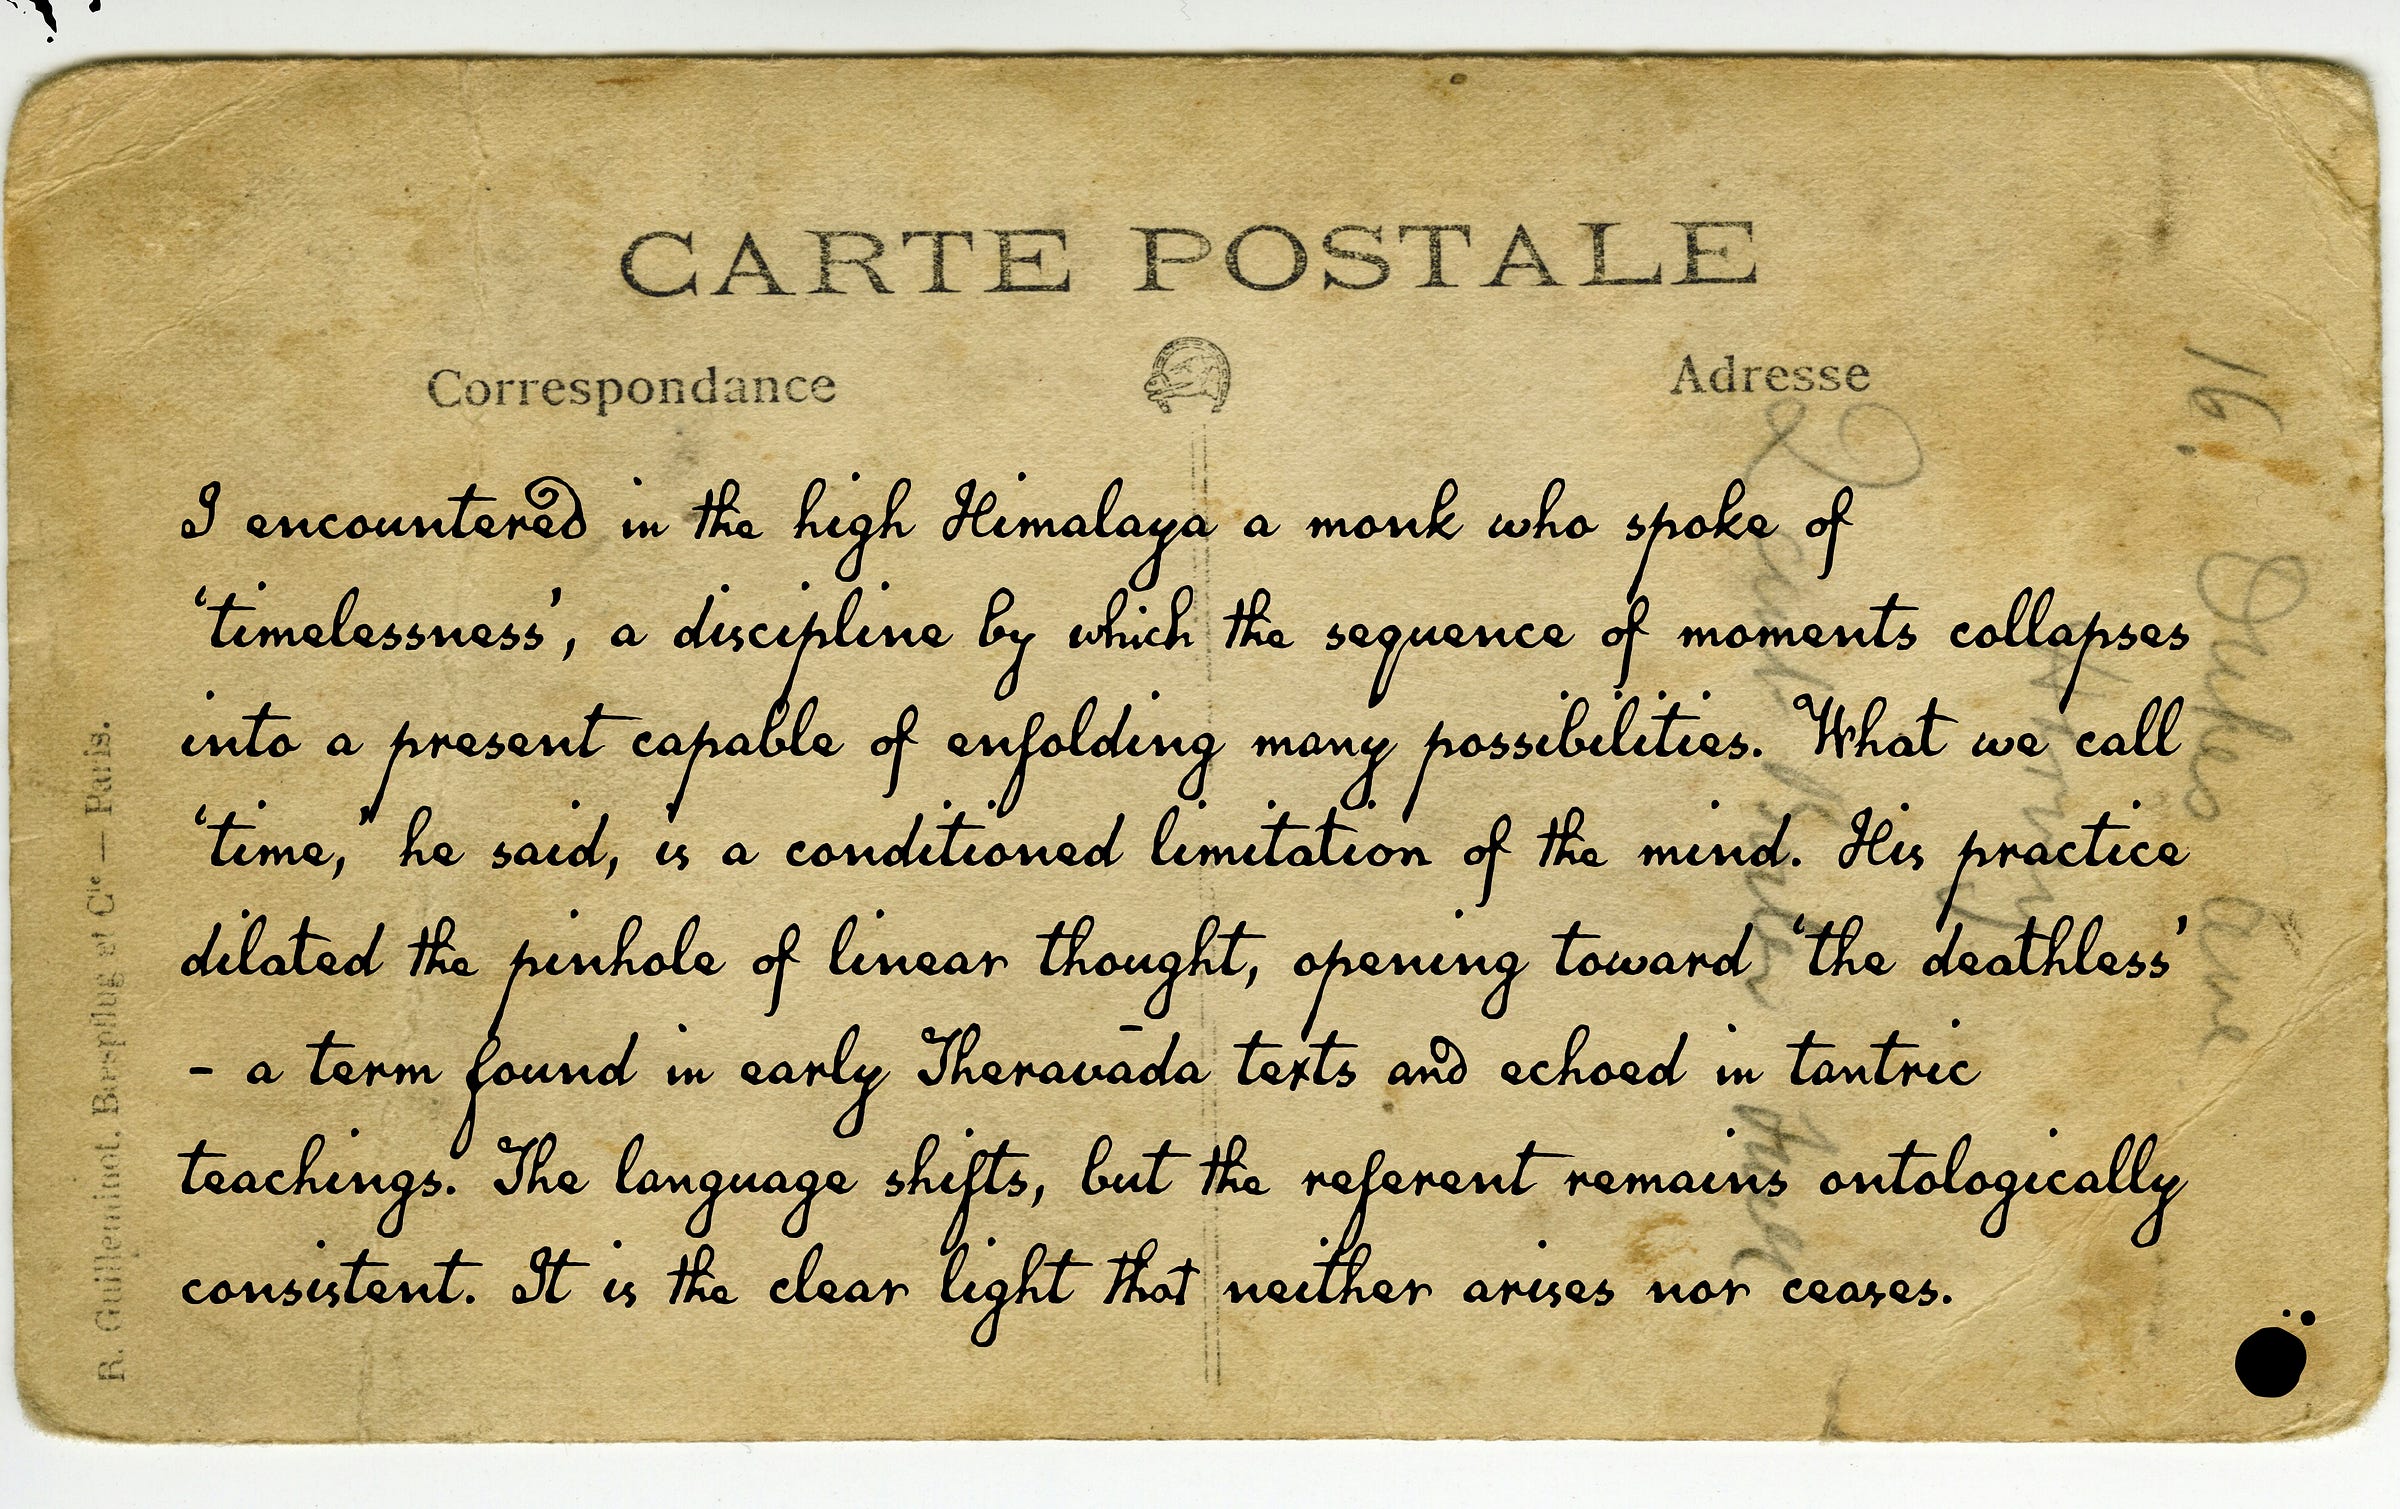 CARTE POSTALE
Correspondance
Adresse
I encountered in the high Himalaya a monk who spoke of
‘timelessness’, a discipline by which the sequence of moments collapses
into a present capable of enfolding many possibilities. What we call
‘time,’ he said, is a conditioned limitation of the mind. His practice
dilated the pinhole of linear thought, opening toward ‘the deathless’
- a term found in early Theravāda texts and echoed in tantric
teachings. The language shifts, but the referent remains ontologically
consistent. It is the clear light that neither arises nor ceases.
R. Guilleminot, Bœspflug et Cie — Paris.
16.